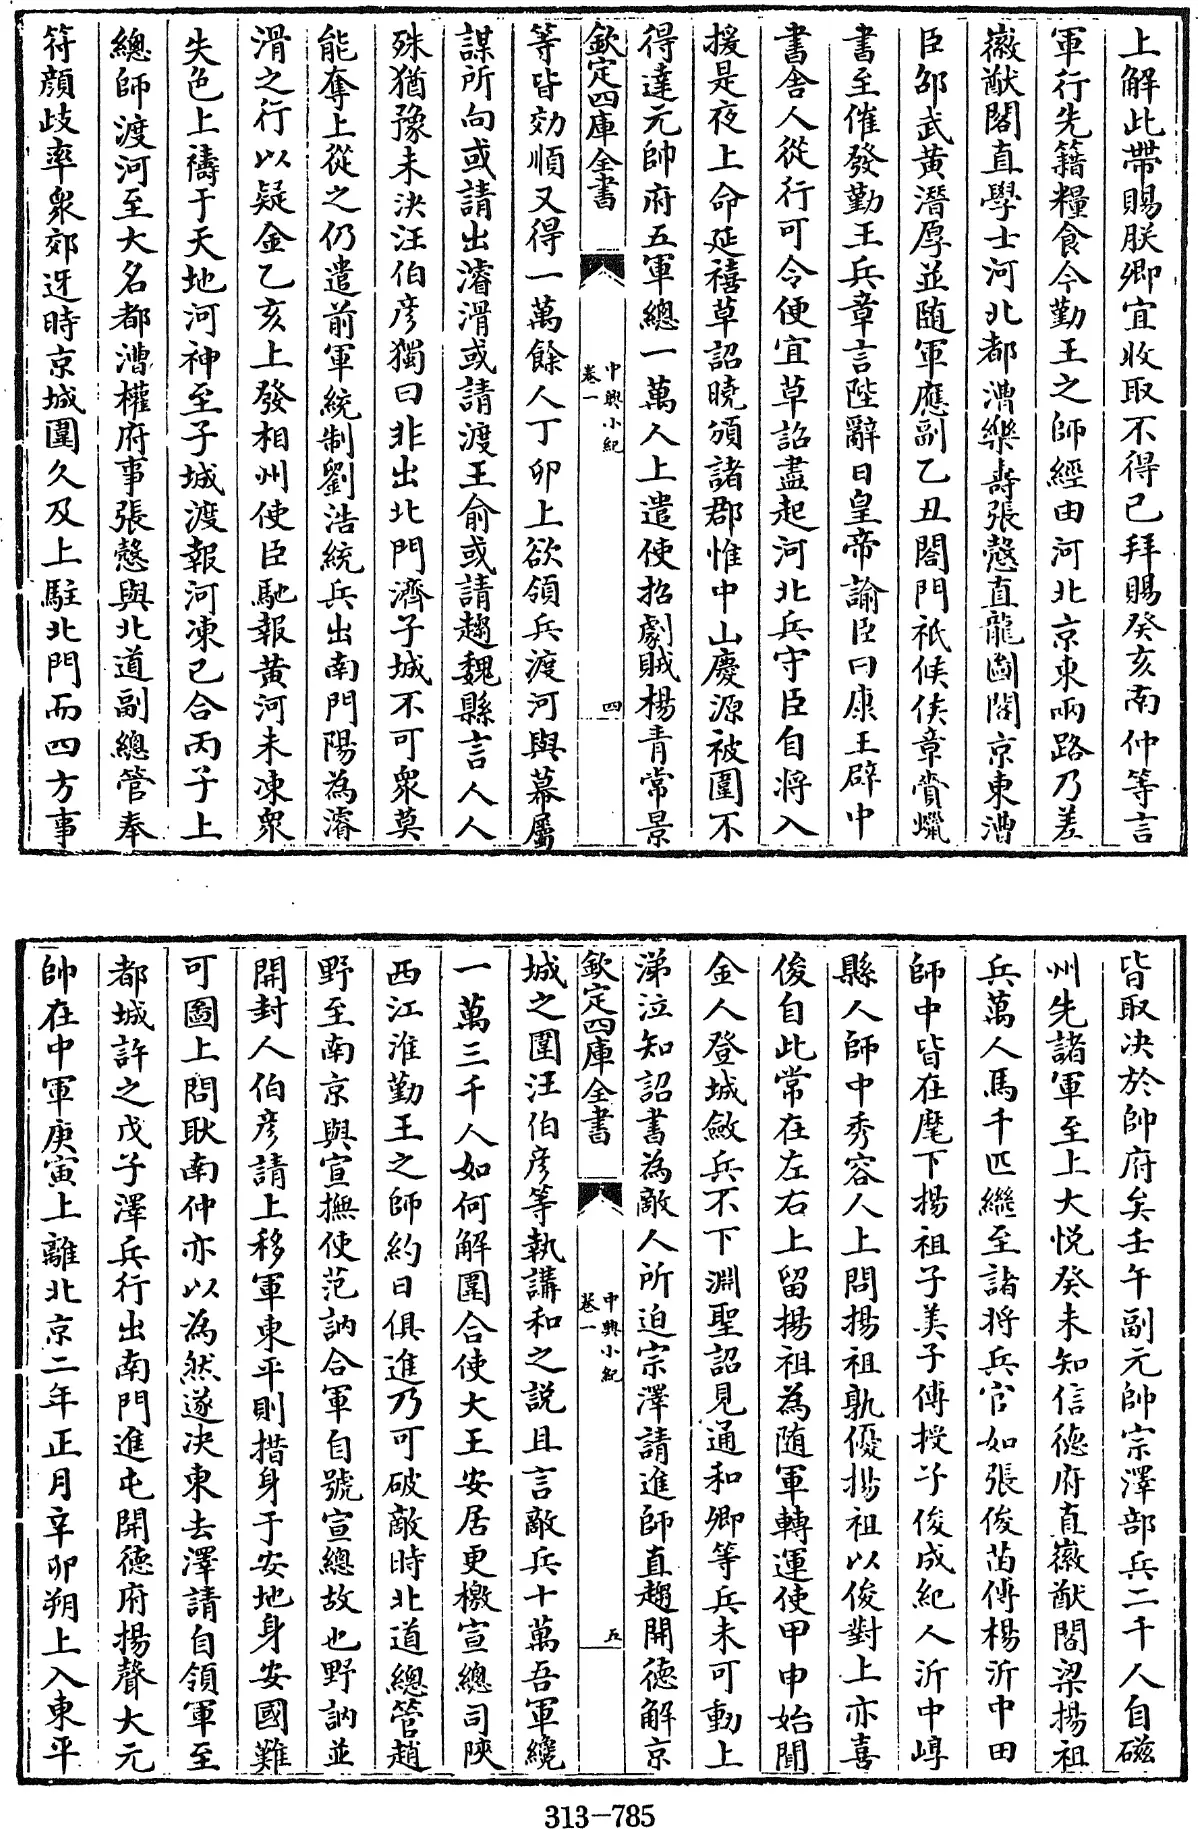 上解此帶賜朕卿宜收取不得已拜賜癸亥南仲等言
軍行先籍糧食今勤王之師經由河北京東兩路乃差
徽猷閣直學士河北都漕樂壽張慤直龍圖閣京東漕
臣邵武黃潛厚並随軍應副乙丑閤門祗候侯章賫蠟
書至催發勤王兵章言陛辭日皇帝諭臣曰康王辟中
書舍人從行可令便宜草詔盡起河北兵守臣自將入
援是夜上命延禧草詔曉頒諸郡惟中山慶源被圍不
得達元帥府五軍總一萬人上遣使招劇賊楊青常景
欽定四庫全書
中興小紀
卷一
四
等皆効順又得一萬餘人丁卯上欲領兵渡河與幕屬
謀所向或請出濬滑或請渡王俞或請趨魏縣言人人
殊猶豫未決汪伯彦獨曰非出北門濟子城不可衆莫
能奪上從之仍遣前軍統制劉浩統兵出南門陽為濬
滑之行以疑金乙亥上發相州使臣馳報黃河未凍衆
失色上禱于天地河神至子城渡報河凍已合丙子上
總師渡河至大名都漕權府事張慤與北道副總管奉
符顔歧率衆郊迓時京城圍久及上駐北門而四方事
皆取決於帥府矣壬午副元帥宗澤部兵二千人自磁
州先諸軍至上大悅癸未知信德府直徽猷閣梁揚祖
兵萬人馬千匹繼至諸將兵官如張俊苗傅楊沂中田
師中皆在麾下揚祖子美子傅授子俊成紀人沂中崞
縣人師中秀容人上問揚祖孰優揚祖以俊對上亦喜
俊自此常在左右上留揚祖為随軍轉運使甲申始聞
金人登城斂兵不下淵聖詔見通和卿等兵未可動上
涕泣知詔書為敵人所迫宗澤請進師直趨開德解京
欽定四庫全書
中興小紀
卷一
五
城之圍汪伯彦等執講和之説且言敵兵十萬吾軍纔
一萬三千人如何解圍合使大王安居更檄宣總司陝
西江淮勤王之師約日俱進乃可破敵時北道總管趙
野至南京與宣撫使范訥合軍自號宣總故也野訥並
開封人伯彦請上移軍東平則措身于安地身安國難
可圖上問耿南仲亦以為然遂決東去澤請自領軍至
都城許之戊子澤兵行出南門進屯開德府揚聲大元
帥在中軍庚寅上離北京二年正月辛卯朔上入東平
313-785